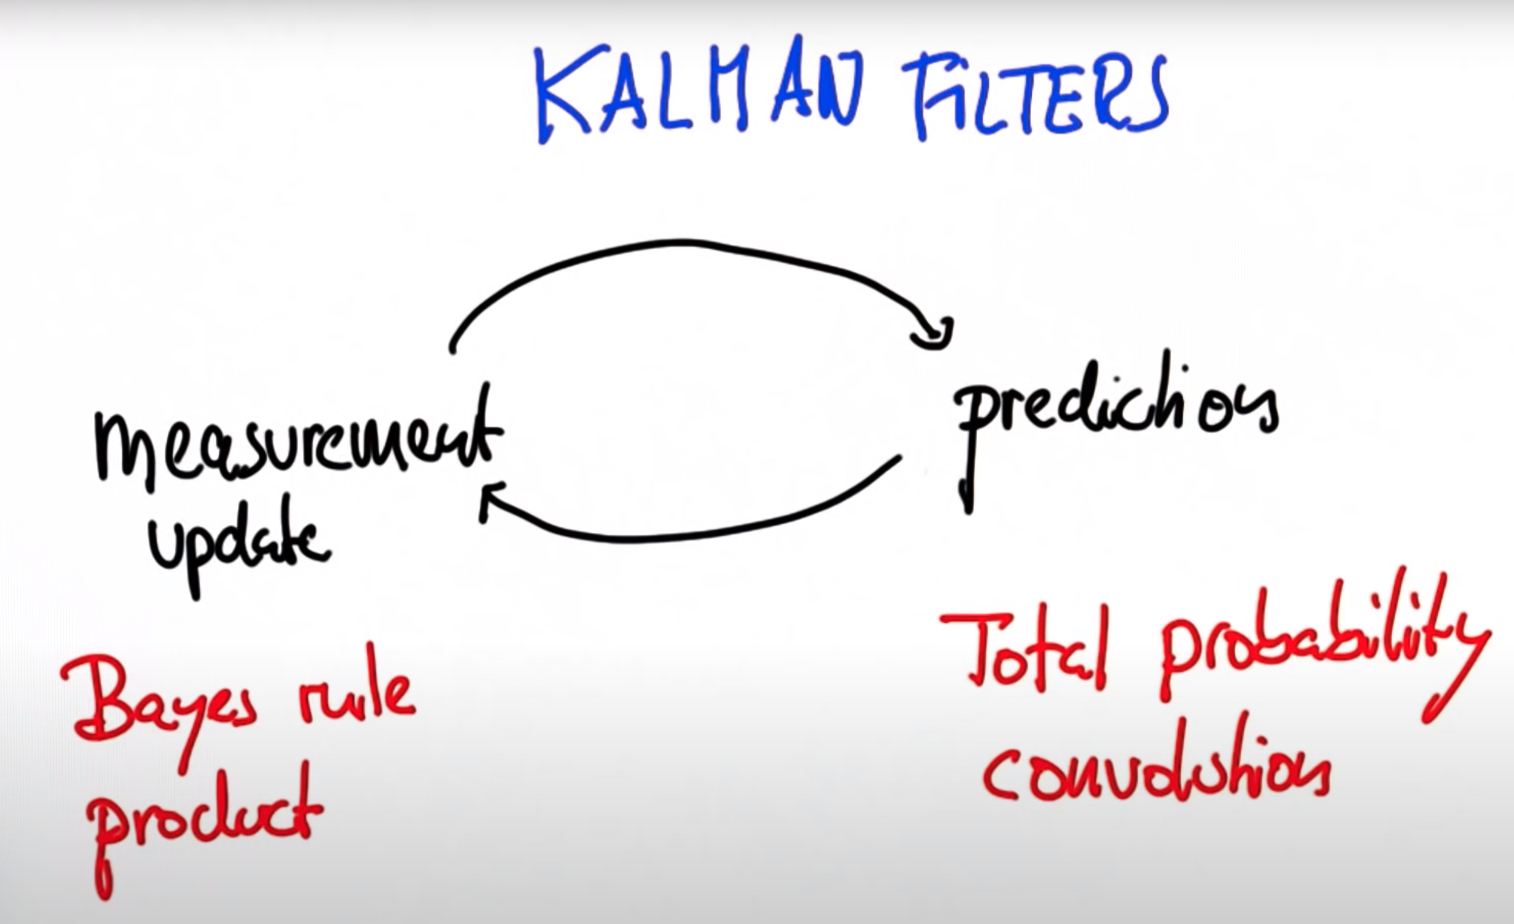 KALMAN FiLTERS
measurement
update
prediction
Bayes rule
product
Total probability
convolution